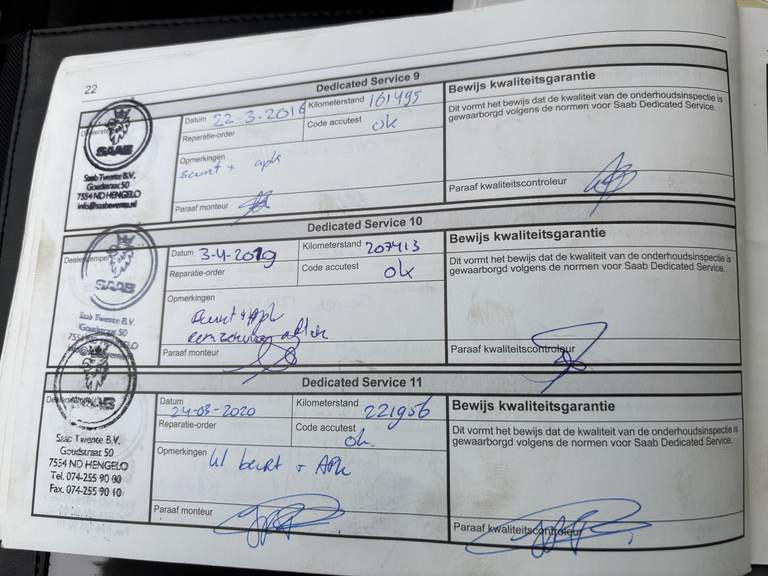 22
Dedicated Service 9
Bewijs kwaliteitsgarantie
Datum 22-3-2016
Kilometerstand 161495
Reparatie-order
Code accutest ok
Dit vormt het bewijs dat de kwaliteit van de onderhoudsinspectie is
gewaarborgd volgens de normen voor Saab Dedicated Service.
SAAB
Saab Twente B.V.
Goudstraat 50
7554 ND HENGELO
info@saabtwente.nl
Opmerkingen
+ apk
Paraaf monteur
Paraaf kwaliteitscontroleur
Dedicated Service 10
Bewijs kwaliteitsgarantie
Datum 3-4-2019
Kilometerstand 207413
Reparatie-order
Code accutest ok
Dit vormt het bewijs dat de kwaliteit van de onderhoudsinspectie is
gewaarborgd volgens de normen voor Saab Dedicated Service.
SAAB
Saab Twente B.V.
Goudstraat 50
7554 ND HENGELO
Opmerkingen
+ Apk
Paraaf monteur
Paraaf kwaliteitscontroleur
Dedicated Service 11
Bewijs kwaliteitsgarantie
Datum 24-03-2020
Kilometerstand 221956
Reparatie-order
Code accutest ok
Dit vormt het bewijs dat de kwaliteit van de onderhoudsinspectie is
gewaarborgd volgens de normen voor Saab Dedicated Service.
Saab Twente B.V.
Goudstraat 50
7554 ND HENGELO
Tel. 074-255 90 00
Fax. 074-255 90 10
Opmerkingen
beurt + APK
Paraaf monteur
Paraaf kwaliteitscontroleur